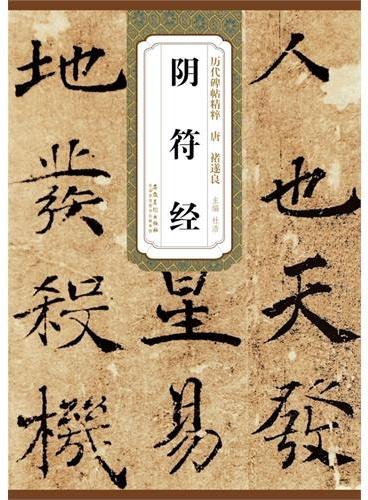 历代碑帖精粹 唐 褚遂良
主编 杜浩
阴符经
安徽美术出版社
人也天發
星易
地發殺機